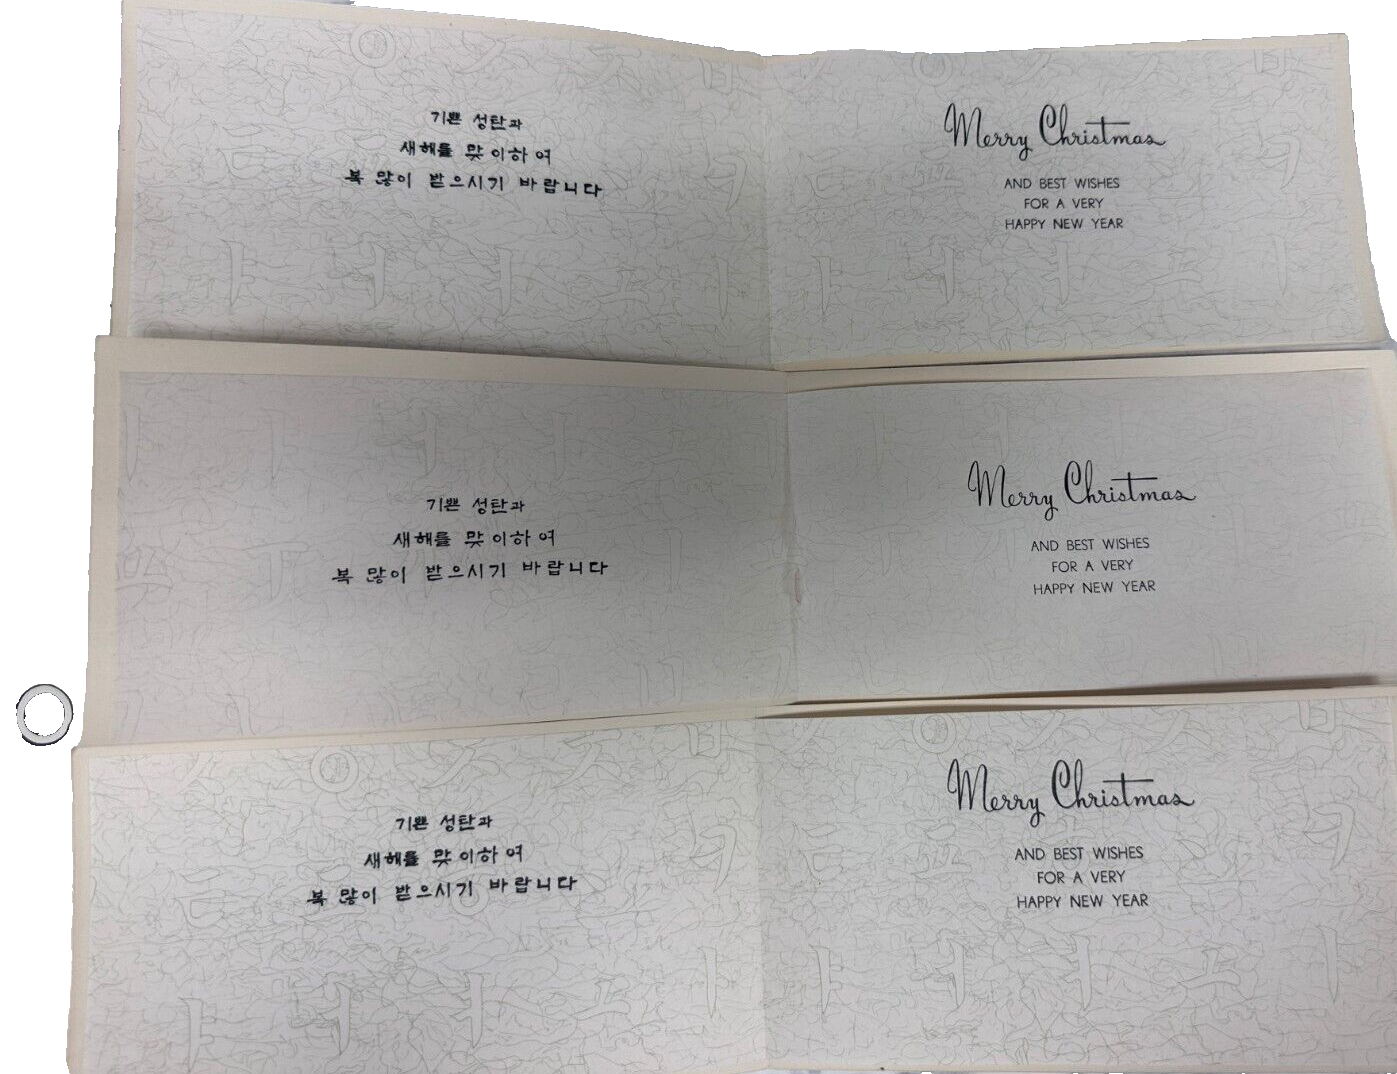 기쁜 성탄과
새해를 맞이하여
복 많이 받으시기 바랍니다
Merry Christmas
AND BEST WISHES
FOR A VERY
HAPPY NEW YEAR
기쁜 성탄과
새해를 맞이하여
복 많이 받으시기 바랍니다
Merry Christmas
AND BEST WISHES
FOR A VERY
HAPPY NEW YEAR
기쁜 성탄과
새해를 맞이하여
복 많이 받으시기 바랍니다
Merry Christmas
AND BEST WISHES
FOR A VERY
HAPPY NEW YEAR